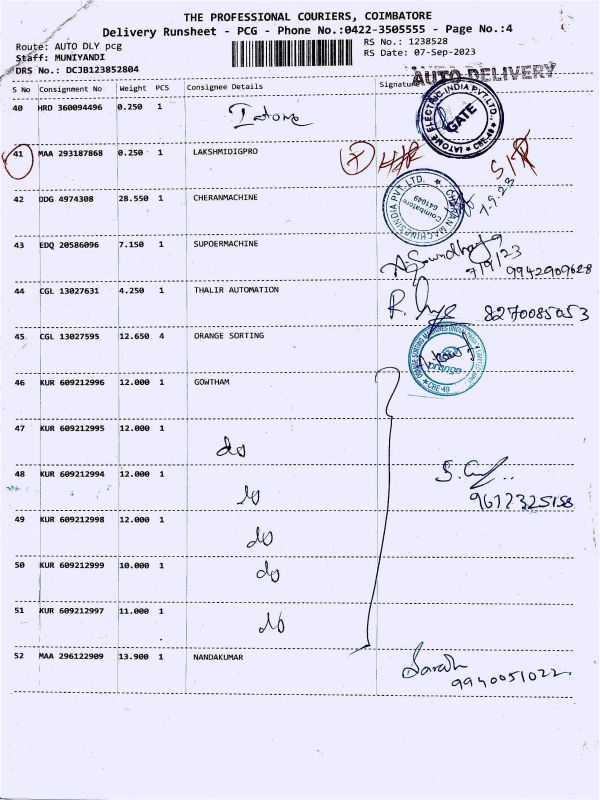 THE PROFESSIONAL COURIERS, COIMBATORE
Delivery Runsheet - PCG - Phone No.:0422-3505555 - Page No.:4
Route: AUTO DLY pcg
Staff: MUNIYANDI
DRS No.: DCJB123852804
RS No.: 1238528
RS Date: 07-Sep-2023
AUTO DELIVERY
S No Consignment No Weight PCS Consignee Details Signature
40 HRD 360094496 0.250 1 Iatome
IATOME ELECTRIC INDIA PVT.LTD.,
GATE
41 MAA 293187868 0.250 1 LAKSHMIDIGPRO
42 DDG 4974308 28.550 1 CHERANMACHINE
CHERAN MACHINES INDIA PVT. LTD.
Coimbatore
641049
7.9.23
43 EDQ 20586096 7.150 1 SUPOERMACHINE
7/9/23 9942909628
44 CGL 13027631 4.250 1 THALIR AUTOMATION
8270085053
45 CGL 13027595 12.650 4 ORANGE SORTING
orange
CBE-49
46 KUR 609212996 12.000 1 GOWTHAM
47 KUR 609212995 12.000 1 do
48 KUR 609212994 12.000 1 do
49 KUR 609212998 12.000 1 do
50 KUR 609212999 10.000 1 do
51 KUR 609212997 11.000 1 do
52 MAA 296122909 13.900 1 NANDAKUMAR
Sarath
9940051022